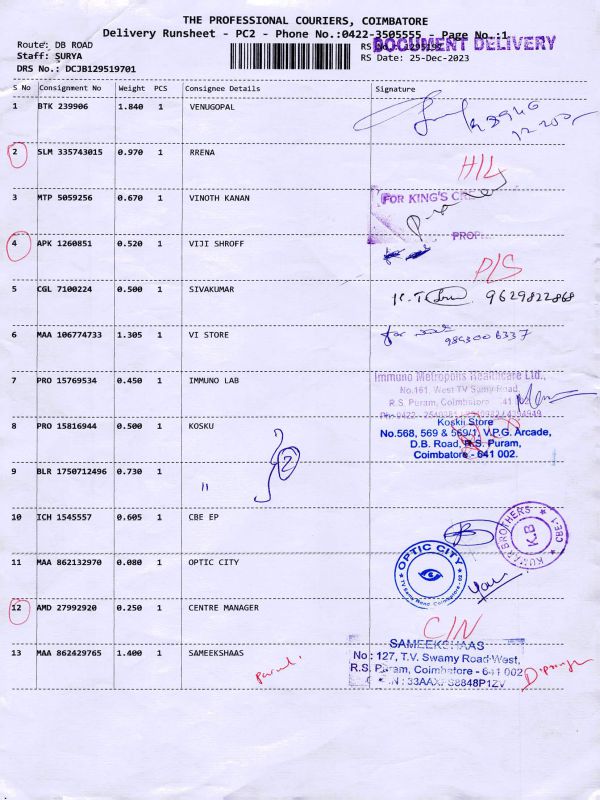 THE PROFESSIONAL COURIERS, COIMBATORE
Delivery Runsheet - PC2 - Phone No.:0422-3505555 - Page No.:1
DOCUMENT DELIVERY
Route: DB ROAD
Staff: SURYA
RS Date: 25-Dec-2023
DRS No.: DCJB129519701
S No Consignment No Weight PCS Consignee Details Signature
1 BTK 239906 1.840 1 VENUGOPAL
2 SLM 335743015 0.970 1 RRENA
3 MTP 5059256 0.670 1 VINOTH KANAN
FOR KING'S
PROP
4 APK 1260851 0.520 1 VIJI SHROFF
5 CGL 7100224 0.500 1 SIVAKUMAR 9629822868
6 MAA 106774733 1.305 1 VI STORE
7 PRO 15769534 0.450 1 IMMUNO LAB
Immuno Metropolis Healthcare Ltd.,
No.161, West TV Samy Road,
R.S. Puram, Coimbatore
8 PRO 15816944 0.500 1 KOSKU
Koskii Store
No.568, 569 & 569/1, V.P.G. Arcade,
D.B. Road, R.S. Puram,
Coimbatore - 641 002.
9 BLR 1750712496 0.730 1 " 2
10 ICH 1545557 0.605 1 CBE EP
KUMAR BROTHERS
K.B
CBE-1
11 MAA 862132970 0.080 1 OPTIC CITY
OPTIC CITY
12 AMD 27992920 0.250 1 CENTRE MANAGER
13 MAA 862429765 1.400 1 SAMEEKSHAAS
SAMEEKSHAAS
No : 127, T.V. Swamy Road-West,
R.S. Puram, Coimbatore - 641 002